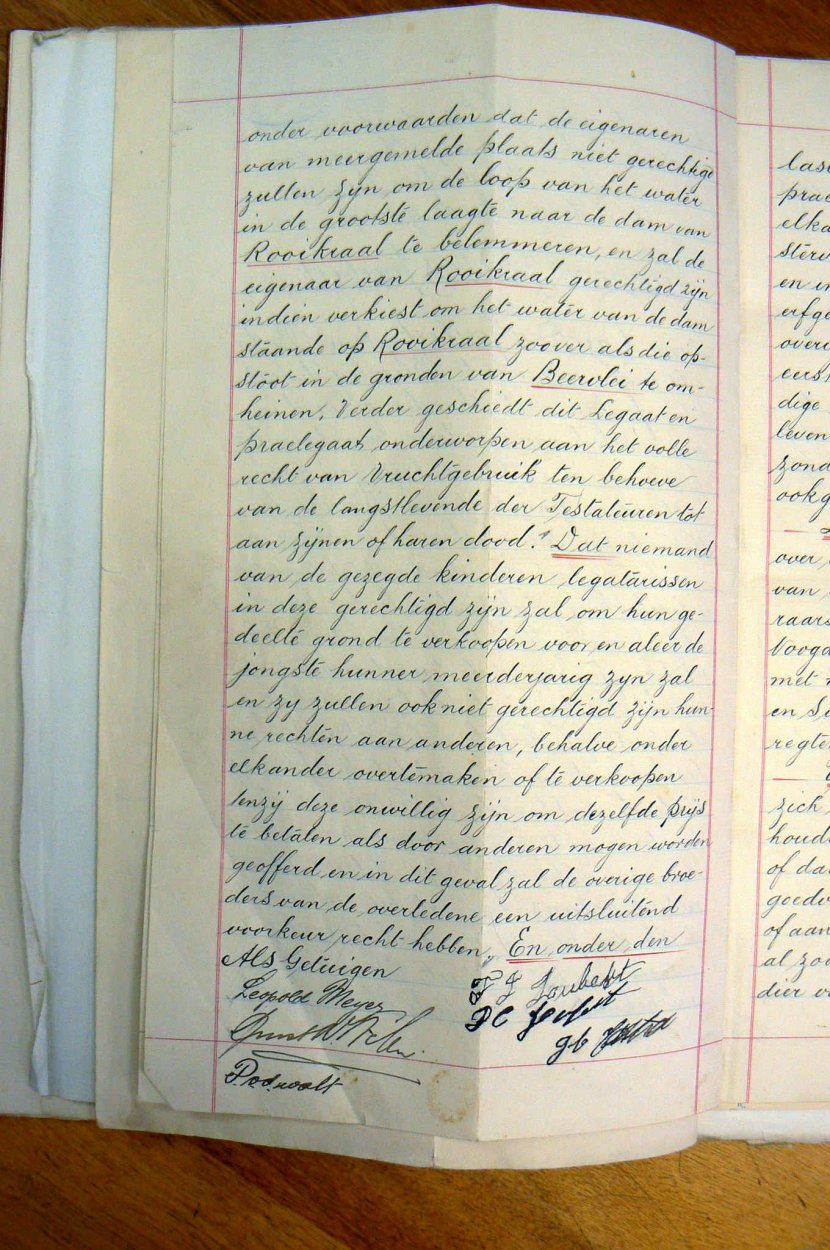 onder voorwaarden dat de eigenaren
van meergemelde plaats niet gerechtigd
zullen zijn om de loop van het water
in de grootste laagte naar de dam van
Rooikraal te belemmeren, en zal de
eigenaar van Rooikraal gerechtigd zijn
indien verkiest om het water van de dam
staande op Rooikraal zoover als die op-
stoot in de gronden van Beervlei te om-
heinen. Verder geschiedt dit Legaat en
praelegaat onderworpen aan het volle
recht van Vruchtgebruik ten behoeve
van de langstlevende der Testateuren tot
aan zijnen of haren dood. Dat niemand
van de gezegde kinderen legatarissen
in deze gerechtigd zijn zal om hun ge-
deelte grond te verkoopen voor en aleer de
jongste hunner meerderjarig zyn zal
en zy zullen ook niet gerechtigd zijn hun-
ne rechten aan anderen, behalve onder
elkander overtemaken of te verkoopen
tenzij deze onwillig zijn om dezelfde prijs
te betalen als door anderen mogen worden
geofferd en in dit geval zal de overige broe-
ders van de overledene een uitsluitend
voorkeur recht hebben. En onder den
Als Getuigen
Leopold Meyer
J J Joubert
D C Joubert
lasi
prae
elka
sterv
en in
erfge
over
eers
dige
leven
zona
ook g
over
van
raars
Voogd
met
en
regten
zich
houd
of dat
goedv
of aan
al zoo
dier v